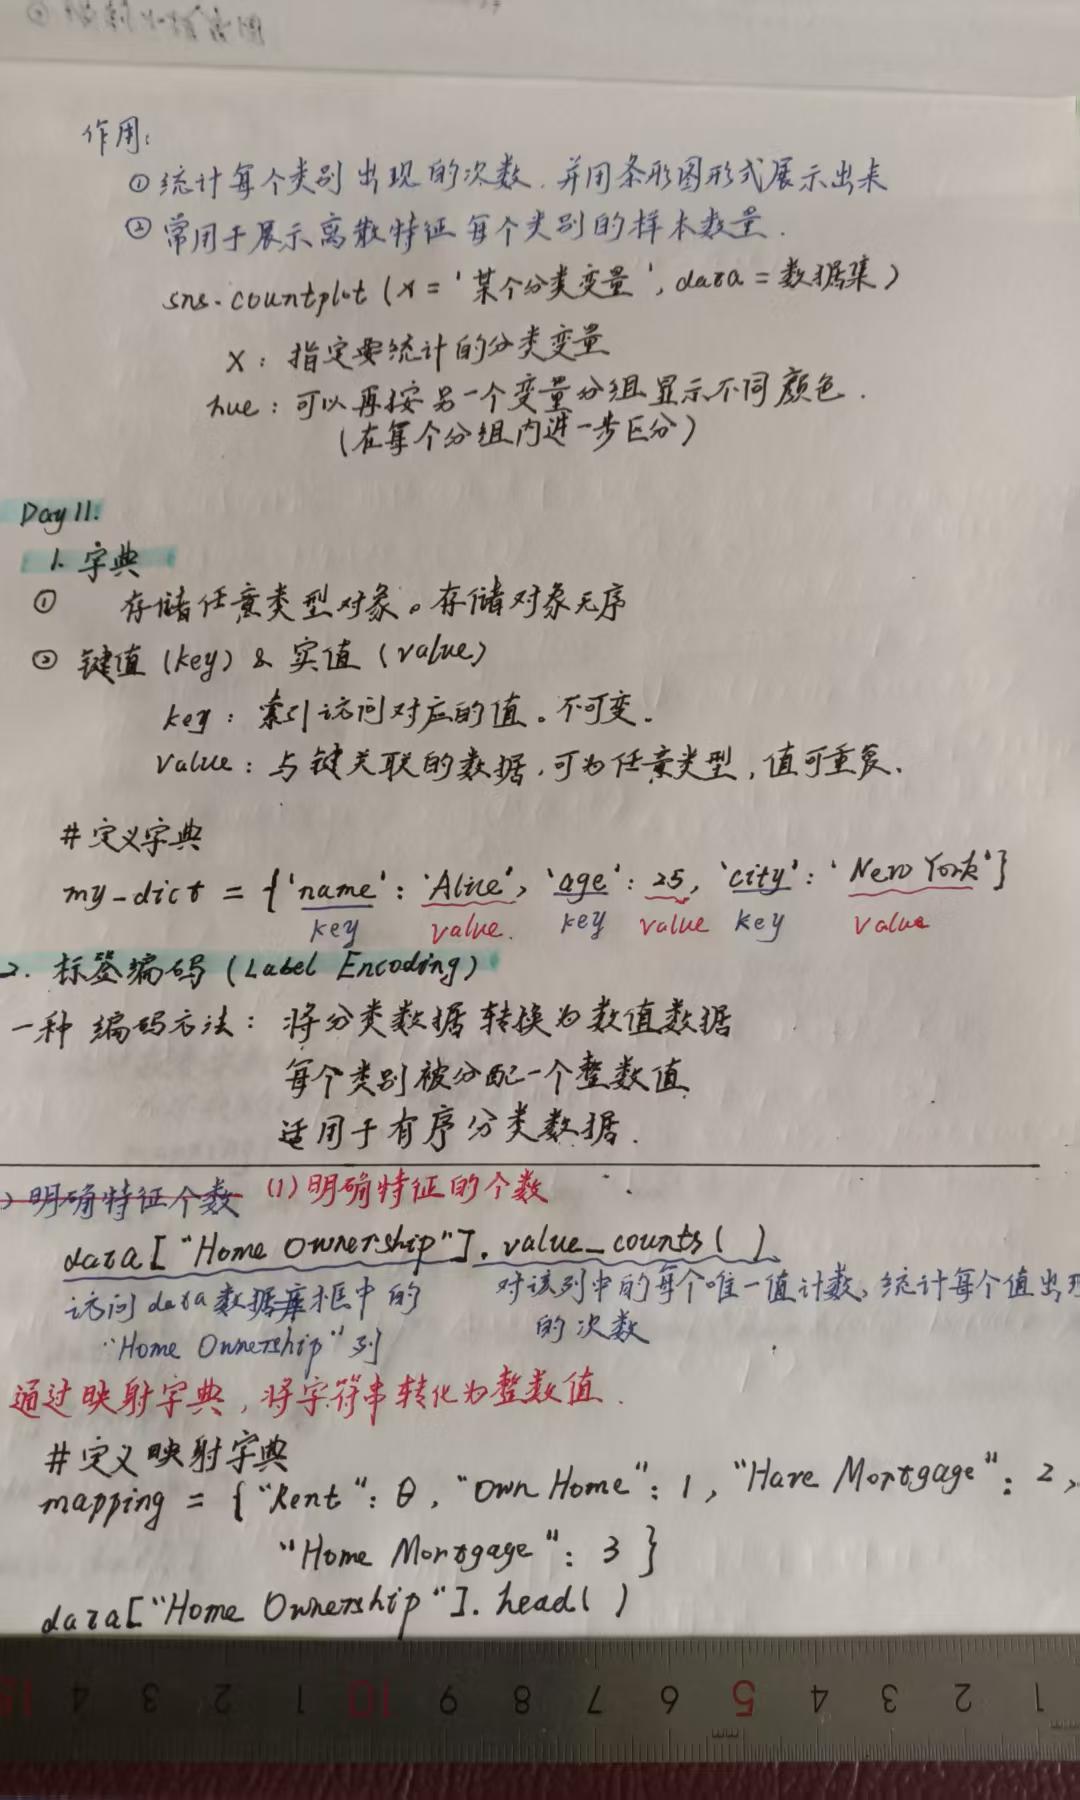 作用:
① 统计每个类别出现的次数,并用条形图形式展示出来
② 常用于展示离散特征每个类别的样本数量.
sns.countplot(x='某个分类变量', data=数据集)
x: 指定要统计的分类变量
hue: 可以再按另一个变量分组显示不同颜色.
(在每个分组内进一步区分)
Day 11.
1. 字典
① 存储任意类型对象。存储对象无序
② 键值(key) & 实值(value)
key: 索引访问对应的值。不可变.
value: 与键关联的数据,可为任意类型,值可重复.
#定义字典
my_dict = {'name': 'Alice', 'age': 25, 'city': 'New York'}
key value. key value key value
2. 标签编码(Label Encoding)
一种编码方法: 将分类数据转换为数值数据
每个类别被分配一个整数值
适用于有序分类数据.
明确特征个数 (1)明确特征的个数
data["Home Ownership"].value_counts()
访问data数据框中的 对该列中的每个唯一值计数,统计每个值出现
"Home Ownership"列 的次数
通过映射字典,将字符串转化为整数值.
#定义映射字典
mapping = {"Rent": 0, "Own Home": 1, "Have Mortgage": 2,
"Home Mortgage": 3}
data["Home Ownership"].head()
4 3 2 1 10 9 8 7 6 5 4 3 2 1